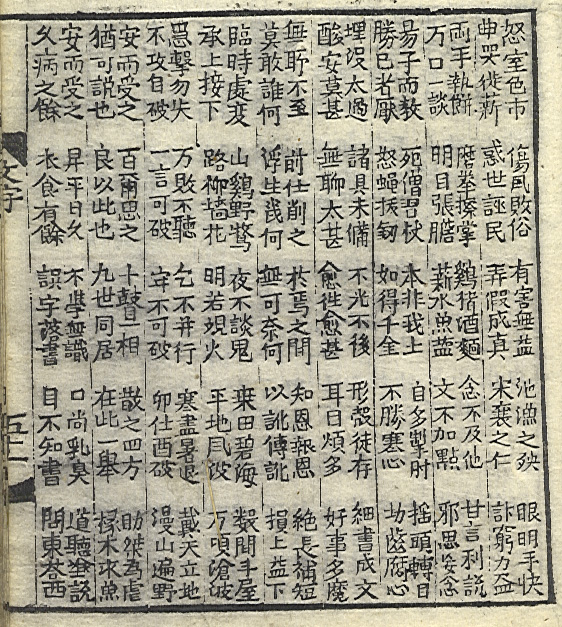 怒室色市 傷風敗俗 有害無益 池漁之殃 眼明手快
申哭徙薪 惑世誣民 弄假成真 宋襄之仁 計窮力盡
両手執餅 磨拳擦掌 鷄猪酒麵 念不及他 甘言利説
万口一談 明目張膽 薪水魚塩 文不加點 邪思妄念
易子而教 死僧習杖 本非我上 自多掣肘 揺頭轉目
勝己者厭 怒蠅拔釼 如得千金 不勝寒心 切齒腐心
埋没太過 諸具未備 不先不後 形殻徒存 細書成文
酸安莫甚 無聊太甚 愈往愈甚 耳目煩多 好事多魔
無所不至 前仕削之 於焉之間 知恩報恩 絶長補短
莫敢誰何 浮生幾何 無可奈何 以訛傳訛 損上益下
臨時處変 山鷄野鶩 夜不談鬼 桒田碧海 數間斗屋
承上接下 路柳墻花 明若観火 平地風波 万頃滄波
愚擊勿失 万敗不聽 乞不並行 寒盡暑退 戴天立地
不攻自破 一言可破 牢不可破 卯仕酉破 漫山遍野
安而受之 百爾思之 十鼓一相 散之四方 助桀為虐
猶可説也 良以此也 九世同居 在此一舉 椽木求魚
安而受之 昇平日久 不學無識 口尚乳臭 道聽塗説
久病之餘 衣食有餘 誤字落書 目不知書 閙東荅西